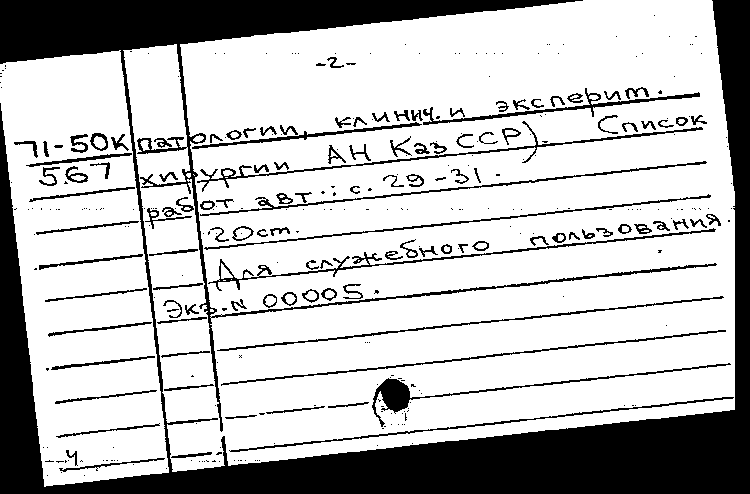 -2-
71-50К патологии, клинич. и эксперим.
567 хирургии АН Каз ССР). Список
работ авт.: с. 29-31.
20cm.
Для служебного пользования.
Экз. N 00005.
4